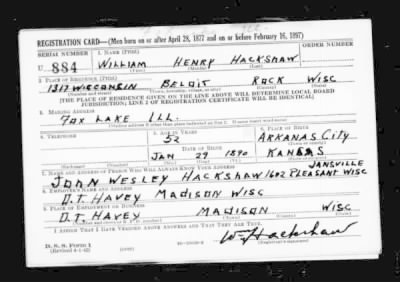 REGISTRATION CARD—(Men born on or after April 28, 1877 and on or before February 16, 1897)
SERIAL NUMBER 1. NAME (Print) ORDER NUMBER
U 884 WILLIAM HENRY HACKSHAW
(First) (Middle) (Last)
2. PLACE OF RESIDENCE (Print)
1317 WISCONSIN BELOIT ROCK WISC
(Number and street) (Town, township, village, or city) (County) (State)
[THE PLACE OF RESIDENCE GIVEN ON THE LINE ABOVE WILL DETERMINE LOCAL BOARD
JURISDICTION; LINE 2 OF REGISTRATION CERTIFICATE WILL BE IDENTICAL]
3. MAILING ADDRESS
FOX LAKE ILL.
[Mailing address if other than place indicated on line 2. If same insert word same]
4. TELEPHONE 5. AGE IN YEARS 6. PLACE OF BIRTH
52 ARKANAS CITY
DATE OF BIRTH
JAN 29 1890 KANSAS
7. NAME AND ADDRESS OF PERSON WHO WILL ALWAYS KNOW YOUR ADDRESS JANSVILLE
JOHN WESLEY HACKSHAW 1602 PLEASANT WISC
8. EMPLOYER'S NAME AND ADDRESS
O.T. HAVEY MADISON WISC
9. PLACE OF EMPLOYMENT OR BUSINESS
O.T. HAVEY MADISON WISC
I AFFIRM THAT I HAVE VERIFIED ABOVE ANSWERS AND THAT THEY ARE TRUE.
D. S. S. FORM 1 Wm Hackshaw
(Revised 4-1-42) (over) (Registrant's signature)